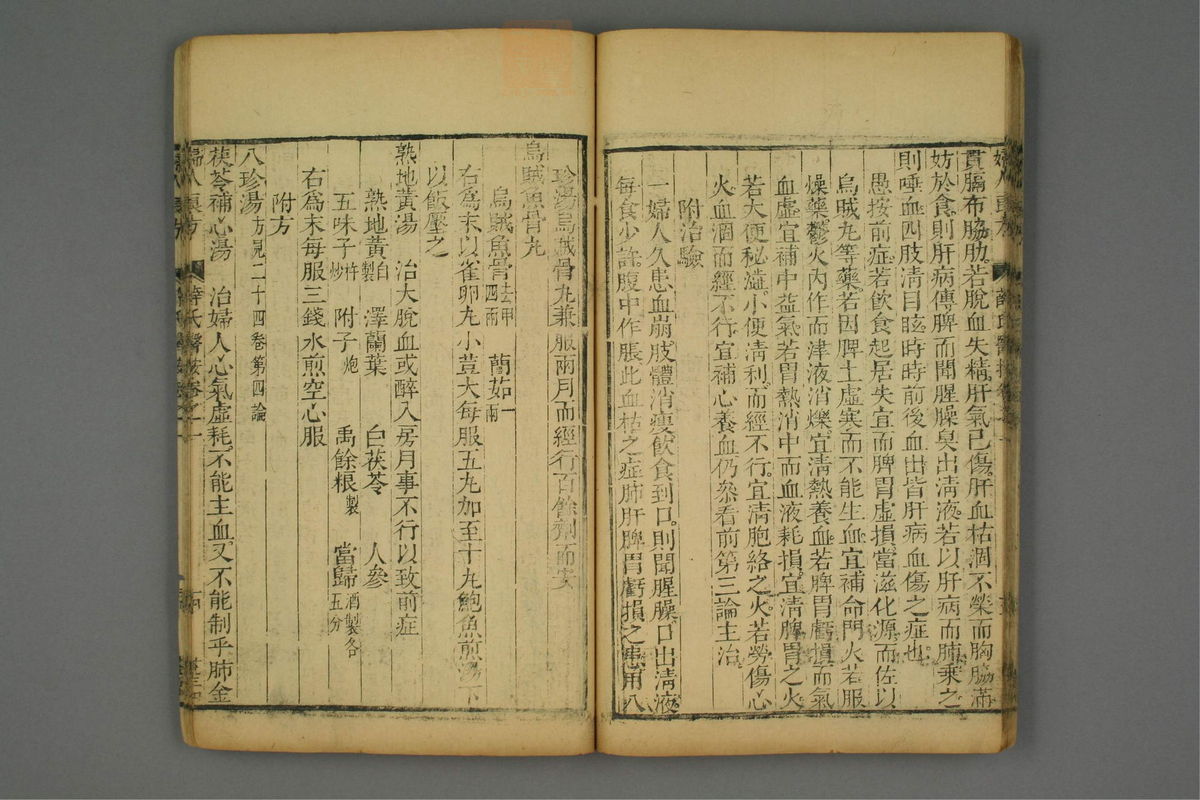 貫膈布脇肋若脫血失精肝氣已傷肝血枯涸不榮而胸脇滿
妨於食則肝病傳脾而聞腥臊臭出淸液若以肝病而肺乗之
則唾血四肢淸目眩時時前後血出皆肝病血傷之症也
愚按前症若飲食起居失宜而脾胃虛損當滋化源而佐以
烏賊丸等藥若因脾土虛寒而不能生血宜補命門火若服
燥藥鬱火內作而津液消爍宜淸熱養血若脾胃虧損而氣
血虛宜補中益氣若胃熱消中而血液耗損宜淸脾胃之火
若大便秘澁小便淸利而經不行宜淸胞絡之火若勞傷心
火血涸而經不行宜補心養血仍叅看前第三論主治
附治驗
一婦人久患血崩肢體消瘦飲食到口則聞腥臊口出淸液
每食少許腹中作脹此血枯之症肺肝脾胃虧損之患用八
珍湯烏賊骨丸兼服兩月而經行百餘劑而安
烏賊魚骨丸
烏賊魚骨去甲四兩 䕡茹一兩
右爲末以雀卵丸小荳大每服五丸加至十丸鮑魚煎湯下
以飯壓之
熟地黃湯 治大脫血或醉入房月事不行以致前症
熟地黃自製 澤蘭葉 白茯苓 人參
五味子杵炒 附子炮 禹餘粮製 當歸酒製各五分
右爲末每服三錢水煎空心服
附方
八珍湯方見二十四卷第四論
茯苓補心湯 治婦人心氣虛耗不能主血又不能制乎肺金
婦人良方